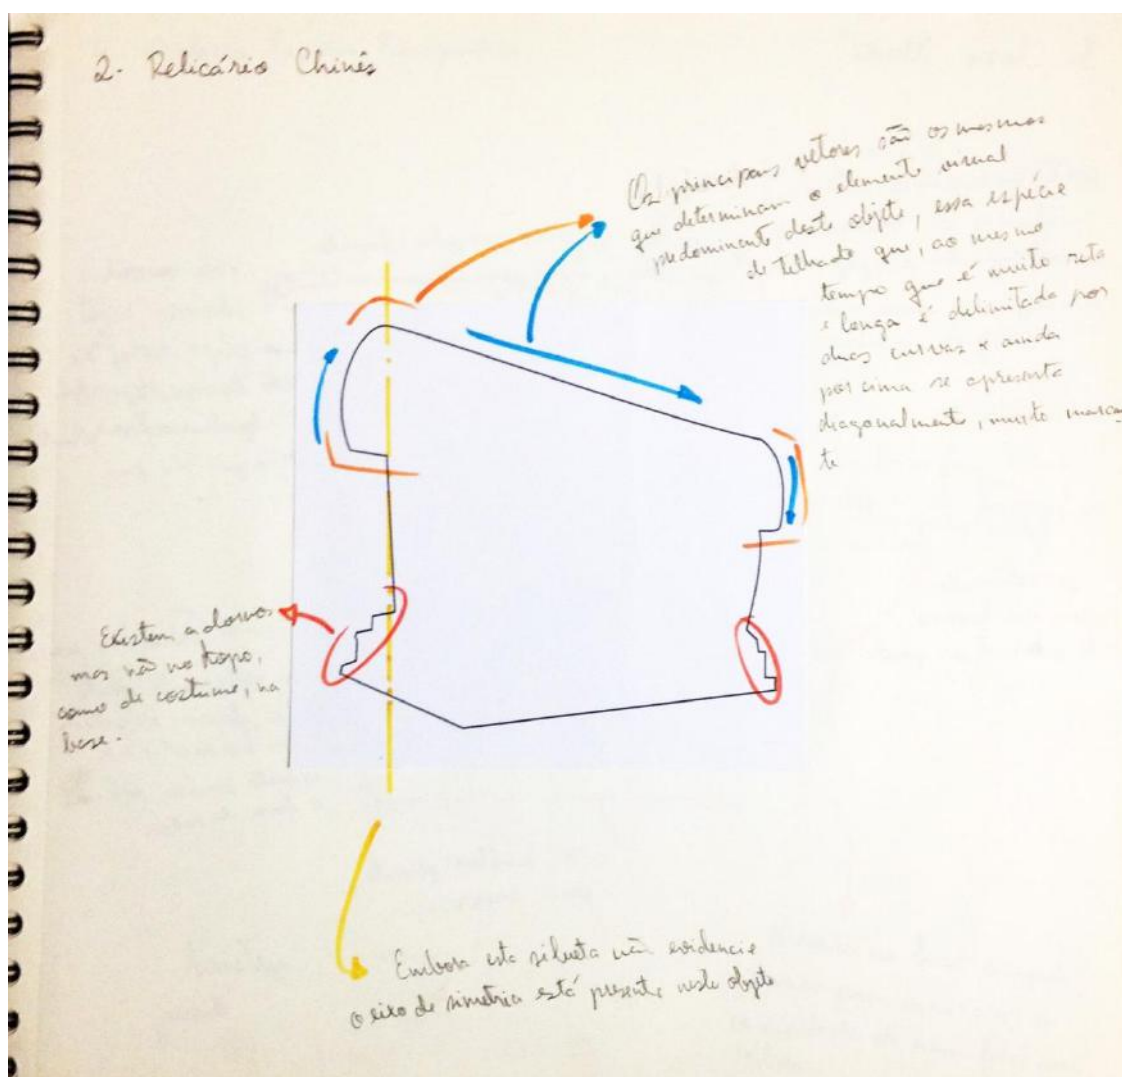 2- Relicário Chinês
Os principais vetores são os mesmos
que determinam o elemento visual
predominante deste objeto, essa espécie
de telhado que, ao mesmo
tempo que é muito reta
e longa é delimitada por
duas curvas e ainda
por cima se apresenta
diagonalmente, muito marcan
te
Existem adornos
mas não no topo,
como de costume, na
base.
Embora esta silueta não evidencie
o eixo de simetria está presente neste objeto